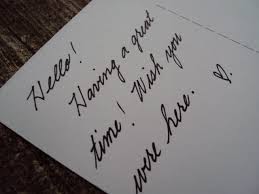 Hello!
Having a great
time! Wish you
were here. ♡.